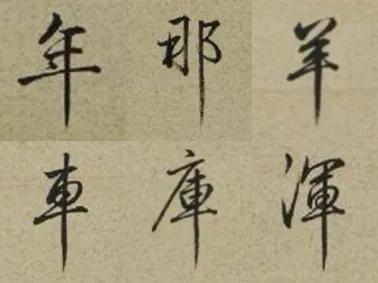 年那羊
車庫渾